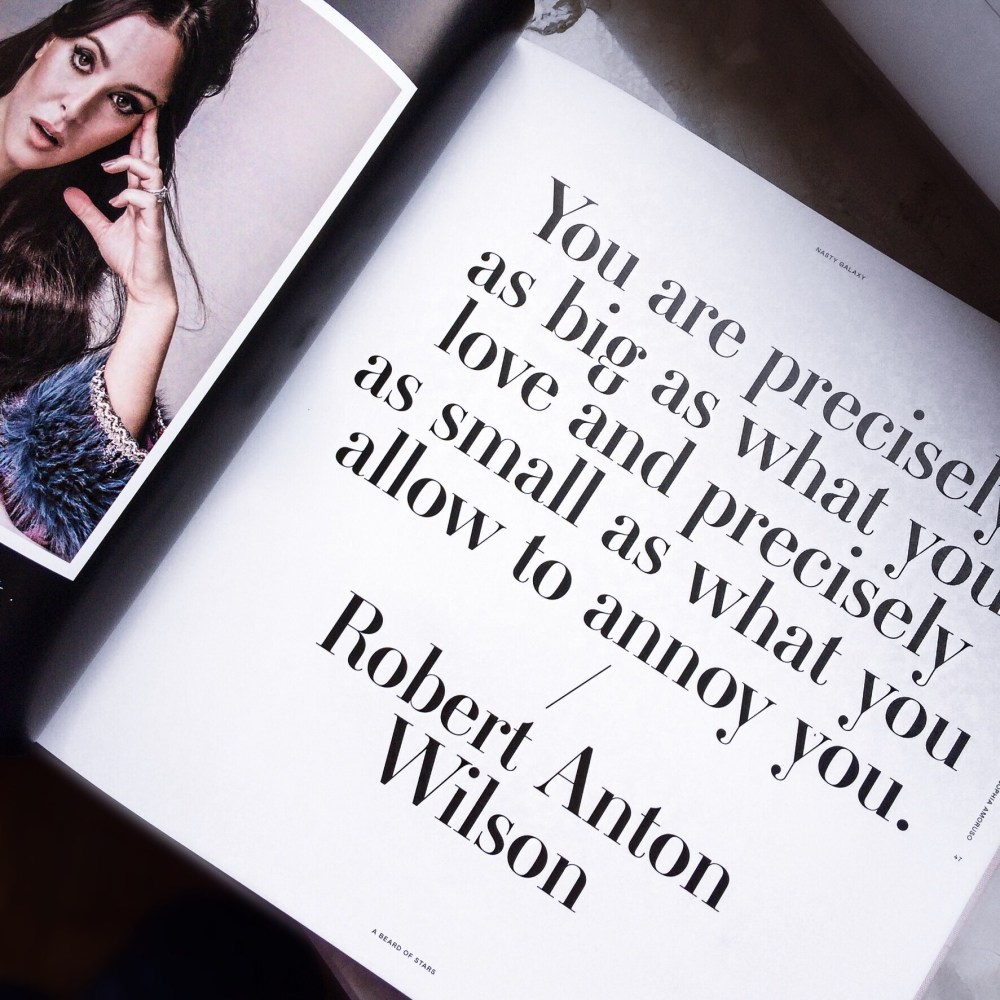 NASTY GALAXY
You are precisely
as big as what you
love and precisely
as small as what you
allow to annoy you.
/
Robert Anton
Wilson
SOPHIA AMORUSO
47
A BEARD OF STARS